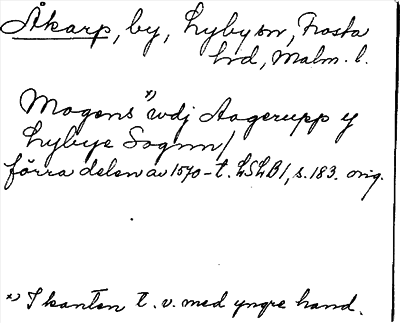 Åkarp, by, Lyby sn, Frosta
hd, Malm. l.
Mogens x) udj Aagerupp y
Lybye Sognn/
förra delen av 1570-t. LSLB1, s. 183. orig.
x) I kanten t. v. med yngre hand.